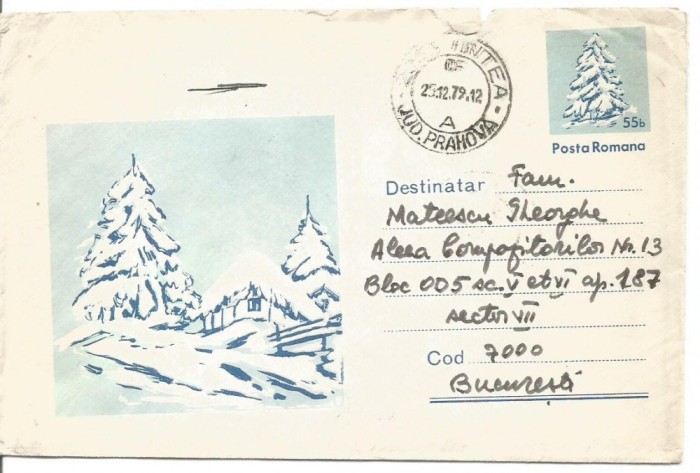 OF
25.12.79.12
A
JUD. PRAHOVA
55b
Posta Romana
Destinatar Fam.
Mateescu Gheorghe
Aleea Compozitorilor Nr. 13
Bloc OD5 sc. V et VI ap. 187
sector VII
Cod 7000
Bucuresti